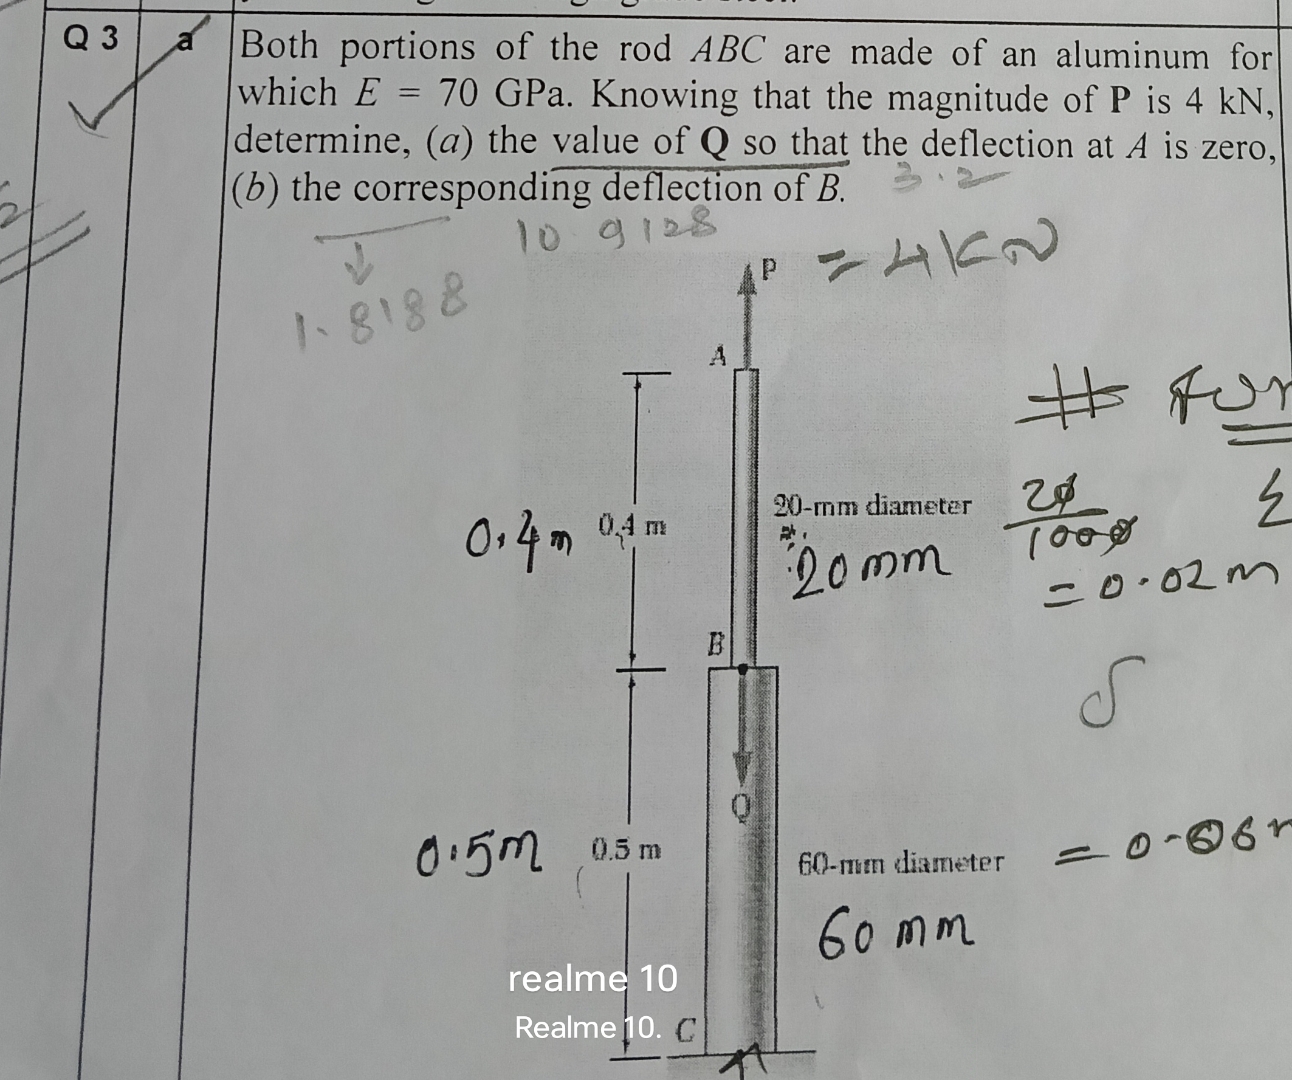 Q 3 a Both portions of the rod ABC are made of an aluminum for
which E = 70 GPa. Knowing that the magnitude of P is 4 kN,
determine, (a) the value of Q so that the deflection at A is zero,
(b) the corresponding deflection of B.
3.2
10.9128
1.8188
P = 4KN
A
# For
20-mm diameter
20/1000
0.4m 0.4 m
20mm
= 0.02m
B
δ
Q
0.5m 0.5 m
60-mm diameter
= 0.06m
60mm
realme 10
Realme 10.
C